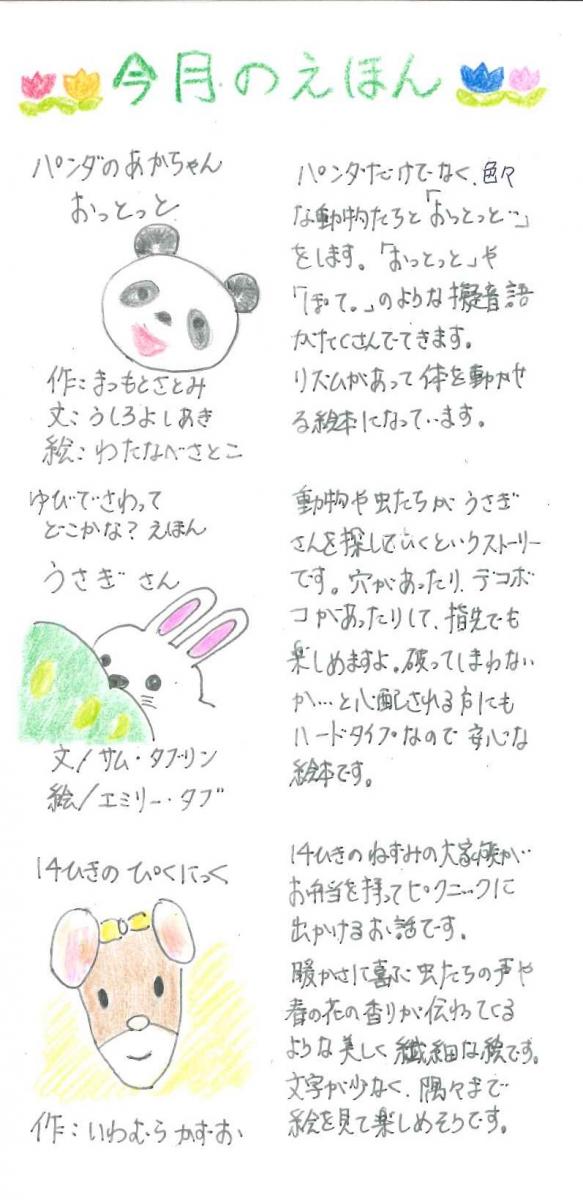 今月のえほん
パンダのあかちゃん
おっとっと
作:まつもとさとみ
文:うしろよしあき
絵:わたなべさとこ
パンダだけでなく、色々
な動物たちと「おっとっと…」
をします。「おっとっと」や
「ぽて。」のような擬音語
がたくさんでてきます。
リズムがあって体を動かせ
る絵本になっています。
ゆびでさわって
どこかな?えほん
うさぎさん
文/サム・タプリン
絵/エミリー・タブ
動物や虫たちがうさぎ
さんを探していくというストーリー
です。穴があったり、デコボ
コがあったりして、指先でも
楽しめますよ。破ってしまわない
か…と心配される方にも
ハードタイプなので安心な
絵本です。
14ひきのぴくにっく
作:いわむらかずお
14ひきのねずみの大家族が
お弁当を持ってピクニックに
出かけるお話です。
暖かさに喜ぶ虫たちの声や
春の花の香りが伝わってくる
ような美しく繊細な絵です。
文字が少なく、隅々まで
絵を見て楽しめそうです。